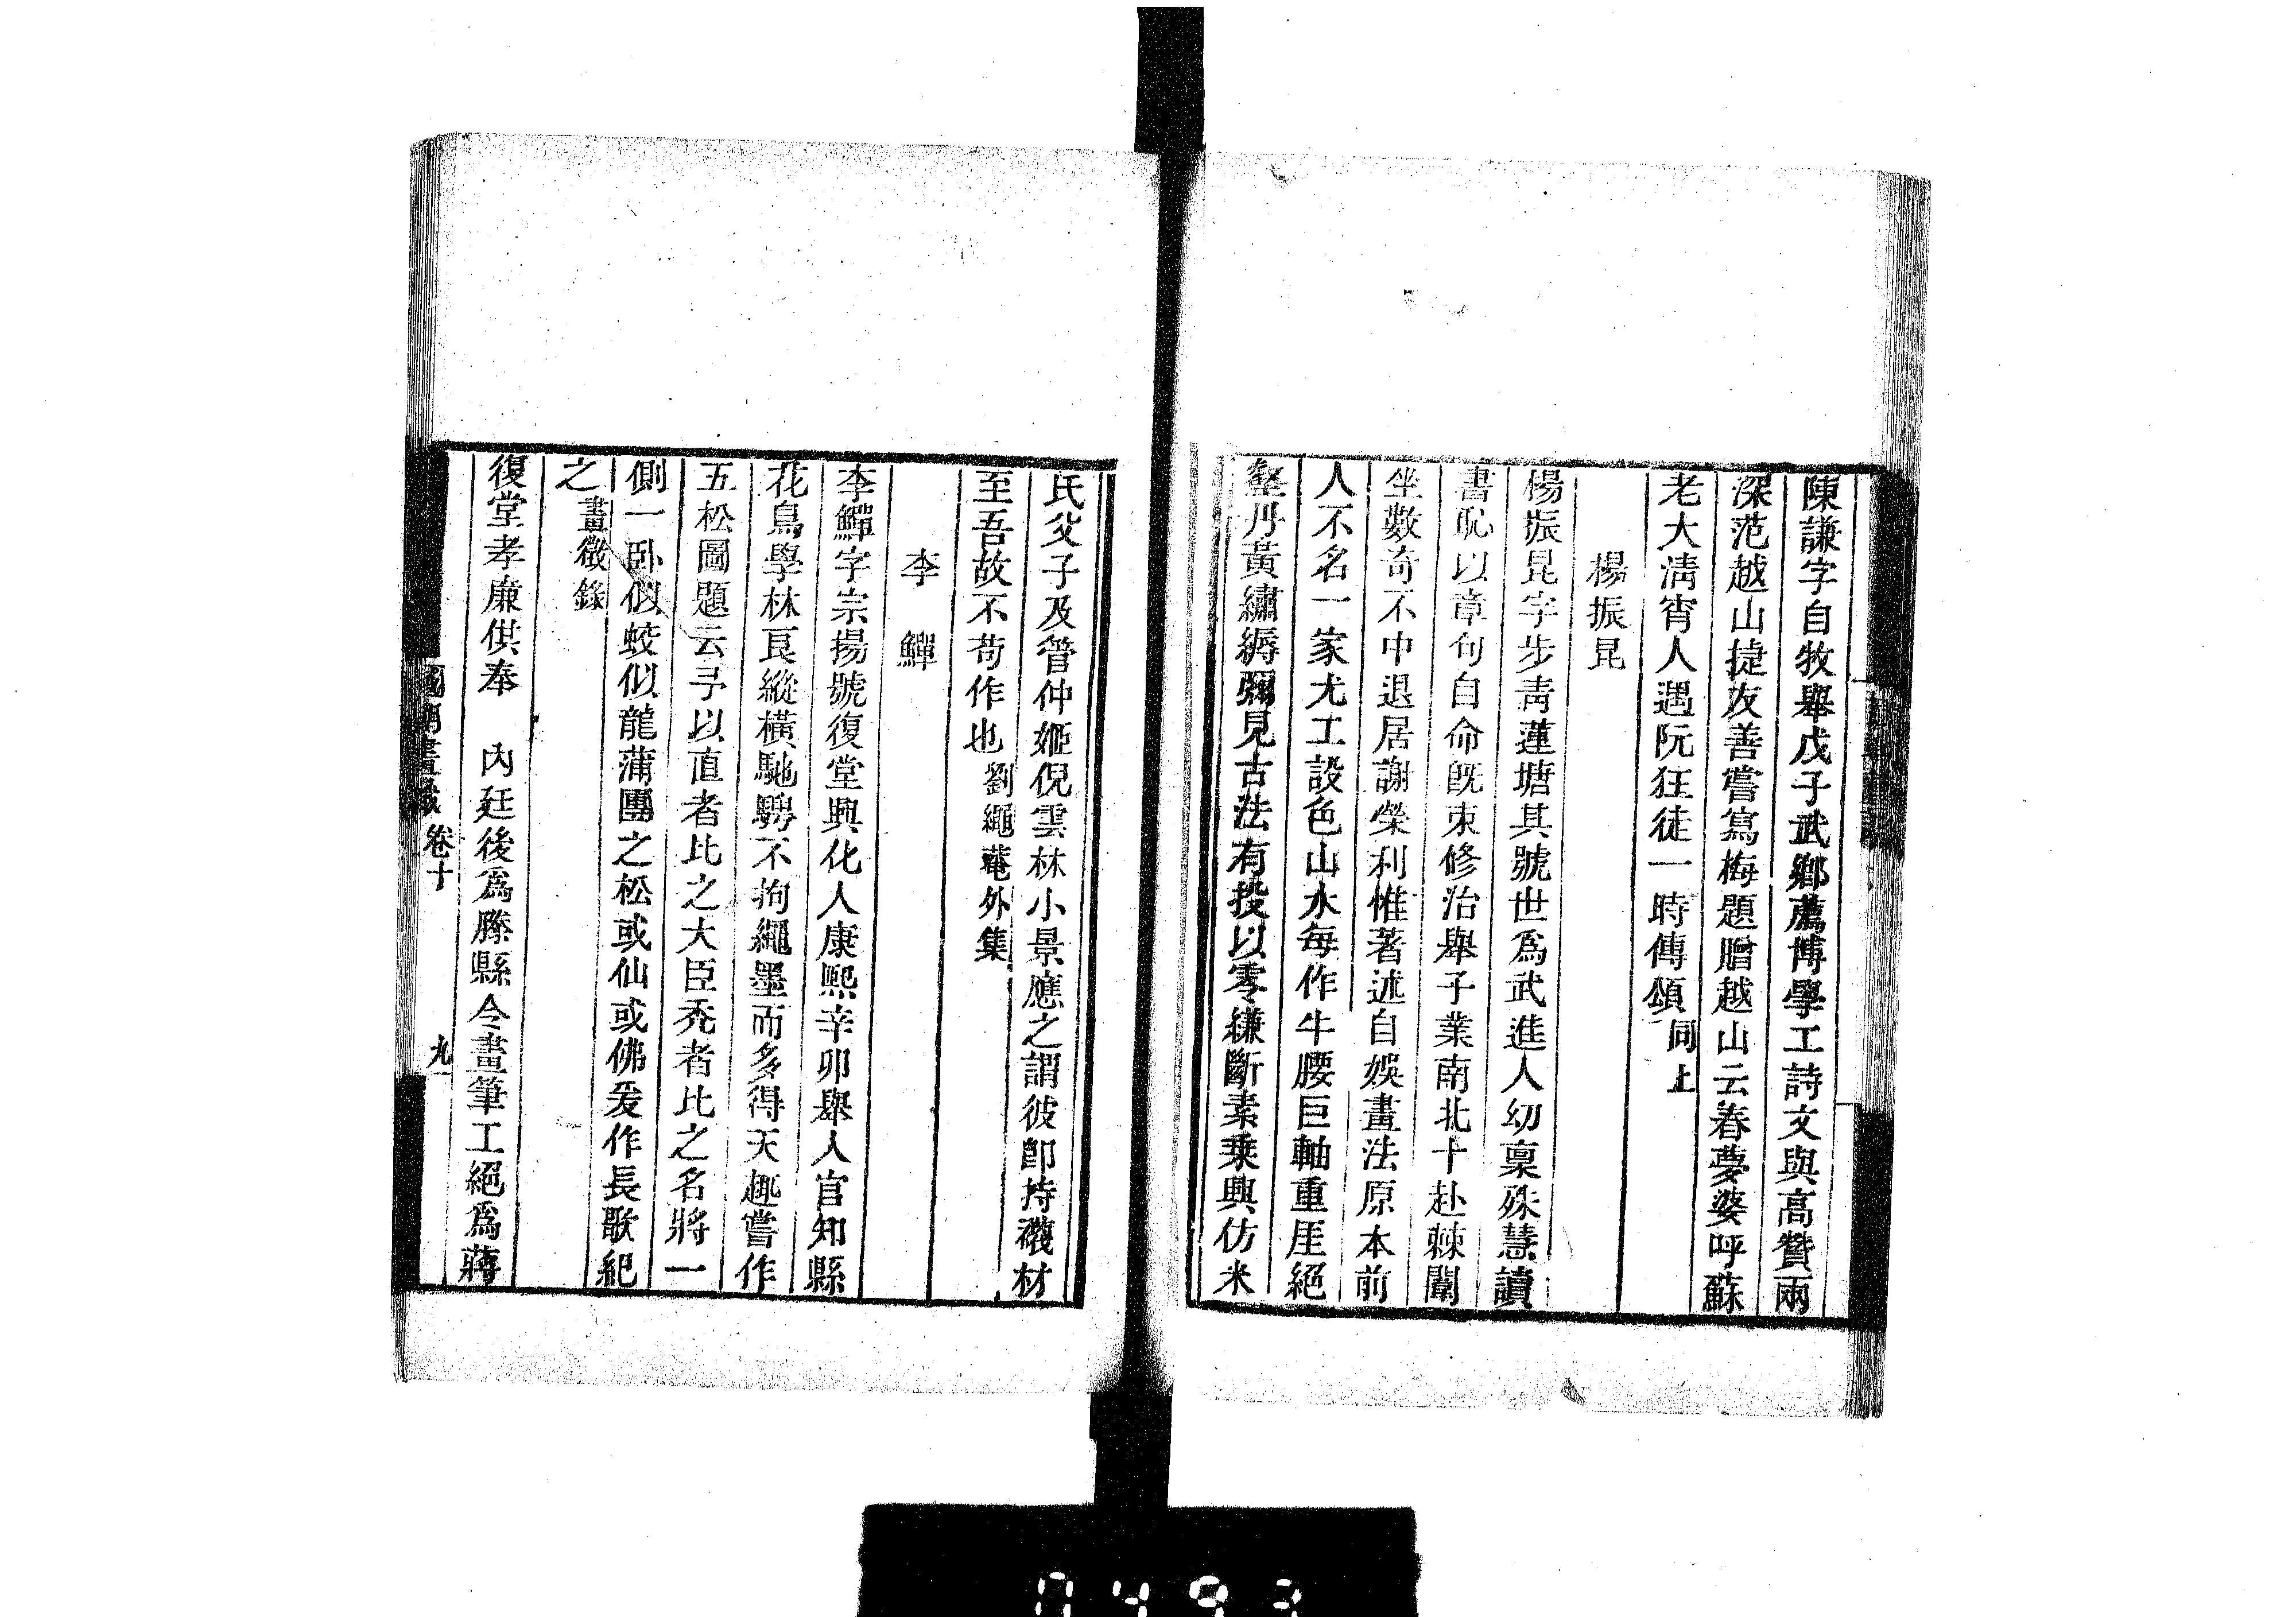 陳謙字自牧舉戊子武鄉薦博學工詩文與高贊兩
深范越山捷友善嘗寫梅題贈越山云春夢婆呼蘇
老大淸宵人遇阮狂徒一時傳頌同上
楊振昆
楊振昆字步靑蓮塘其號世爲武進人幼稟殊慧讀
書恥以章句自命旣束修治舉子業南北十赴棘闈
坐數奇不中退居謝榮利惟著述自娛畫法原本前
人不名一家尤工設色山水每作牛腰巨軸重厓絕
壑丹黃繡縟彌見古法有投以零縑斷素乗興仿米
氏父子及管仲姬倪雲林小景應之謂彼卽持襪材
至吾故不苟作也劉繩菴外集
李鱓
李鱓字宗揚號復堂興化人康熙辛卯舉人官知縣
花鳥學林良縱橫馳騁不拘繩墨而多得天趣嘗作
五松圖題云予以直者比之大臣禿者比之名將一
側一卧似蛟似龍蒲團之松或仙或佛爰作長歌紀
之畫徵錄
復堂孝廉供奉 內廷後爲滕縣令畫筆工絕爲蔣
國朝畫識 卷十 九
0493